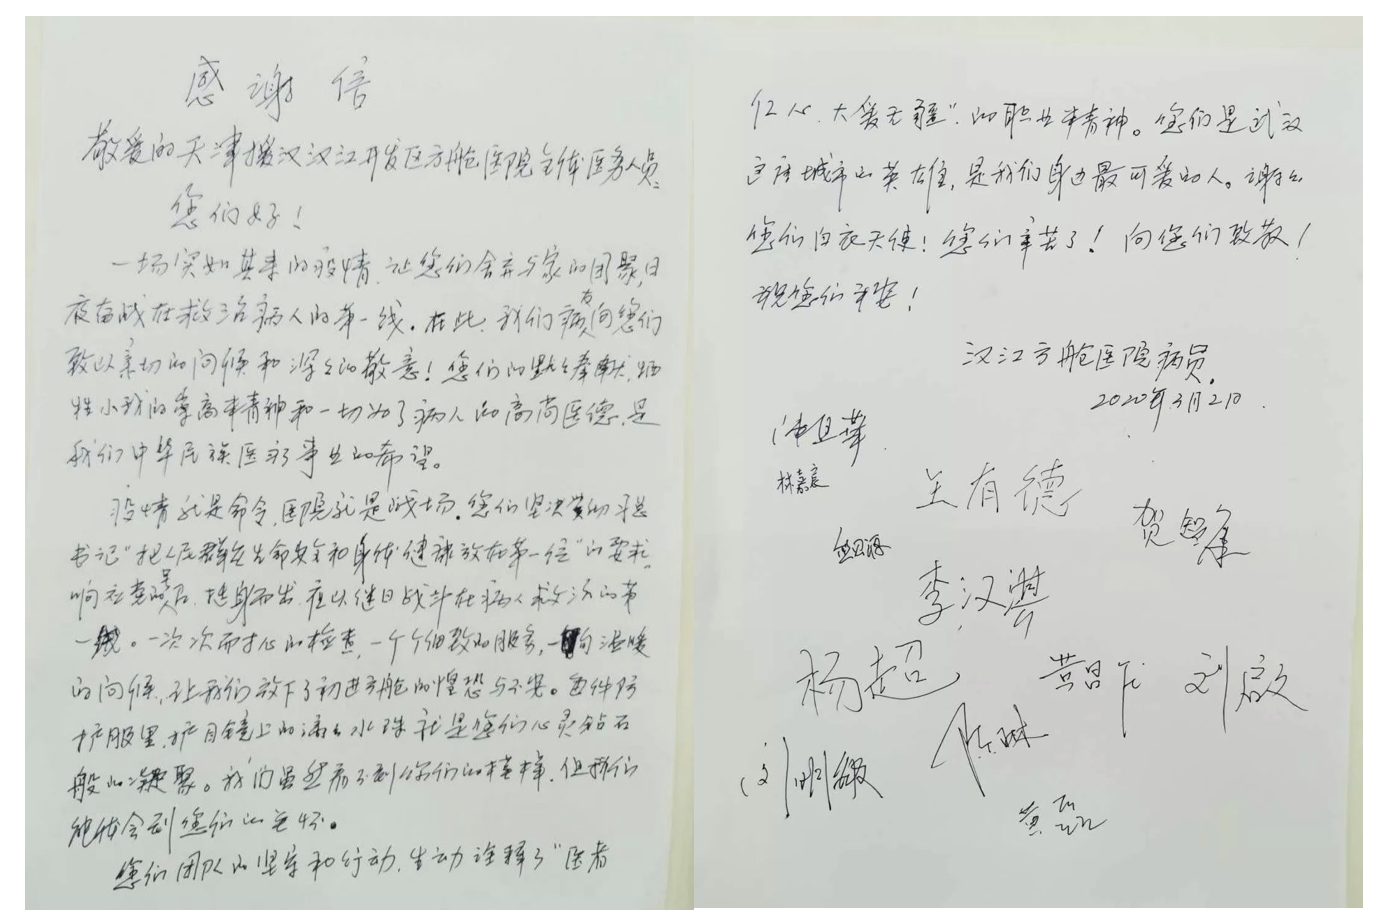 感谢信
敬爱的天津援汉汉江开发区方舱医院全体医务人员:
您们好!
一场突如其来的疫情,让您们舍弃与家的团聚,日
夜奋战在救治病人的第一线。在此,我们病友向您们
致以亲切的问候和深深的敬意!您们的默默奉献,牺
牲小我的崇高精神和一切为了病人的高尚医德,是
我们中华民族医疗事业的希望。
疫情就是命令,医院就是战场。您们坚决贯彻习总
书记"把人民群众生命安全和身体健康放在第一位"的要求,
响应党的号召,挺身而出,夜以继日战斗在病人救治的第
一线。一次次耐心的检查,一个个细致的服务,一句句温暖
的问候,让我们放下了初进方舱的惶恐与不安。每件防
护服里,护目镜上的滴滴水珠就是您们心灵钻石
般的凝聚。我们虽然看不到你们的模样,但我们
能体会到您们的关怀。
您们团队的坚守和行动,生动诠释了"医者
仁心、大爱无疆"的职业精神。您们是武汉
这座城市的英雄,是我们身边最可爱的人。谢谢
您们白衣天使!您们辛苦了!向您们致敬!
祝您们平安!
汉江方舱医院病员。
2020年3月2日.
林嘉
王有德
贺
李汉
杨超
刘啟
刘刚
黄磊